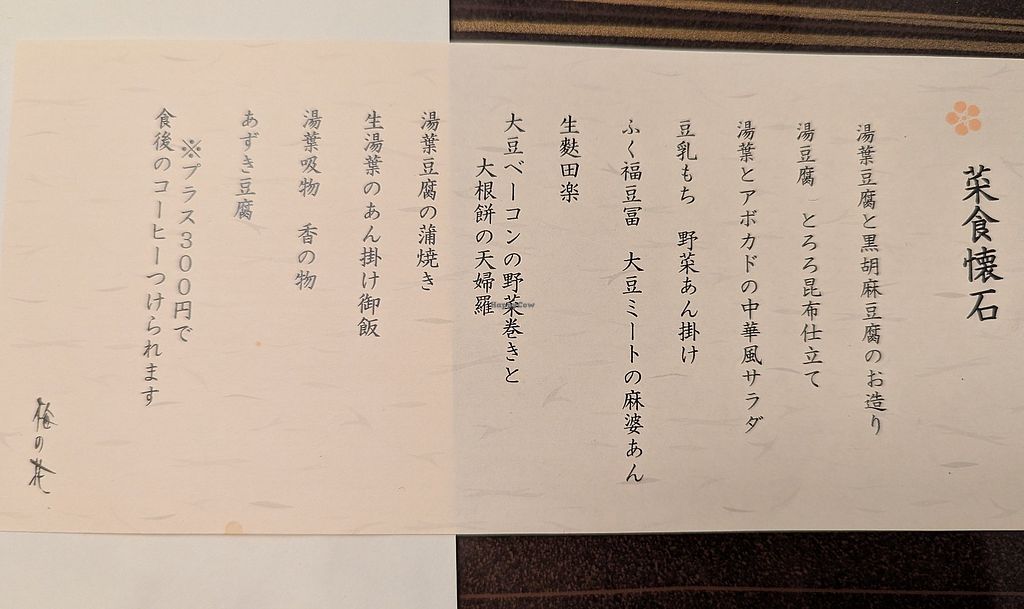 菜食懐石
湯葉豆腐と黒胡麻豆腐のお造り
湯豆腐　とろろ昆布仕立て
湯葉とアボカドの中華風サラダ
豆乳もち　野菜あん掛け
ふく福豆冨　大豆ミートの麻婆あん
生麩田楽
大豆ベーコンの野菜巻きと
大根餅の天婦羅
湯葉豆腐の蒲焼き
生湯葉のあん掛け御飯
湯葉吸物　香の物
あずき豆腐
※プラス３００円で
食後のコーヒーつけられます
梅の花
HappyCow